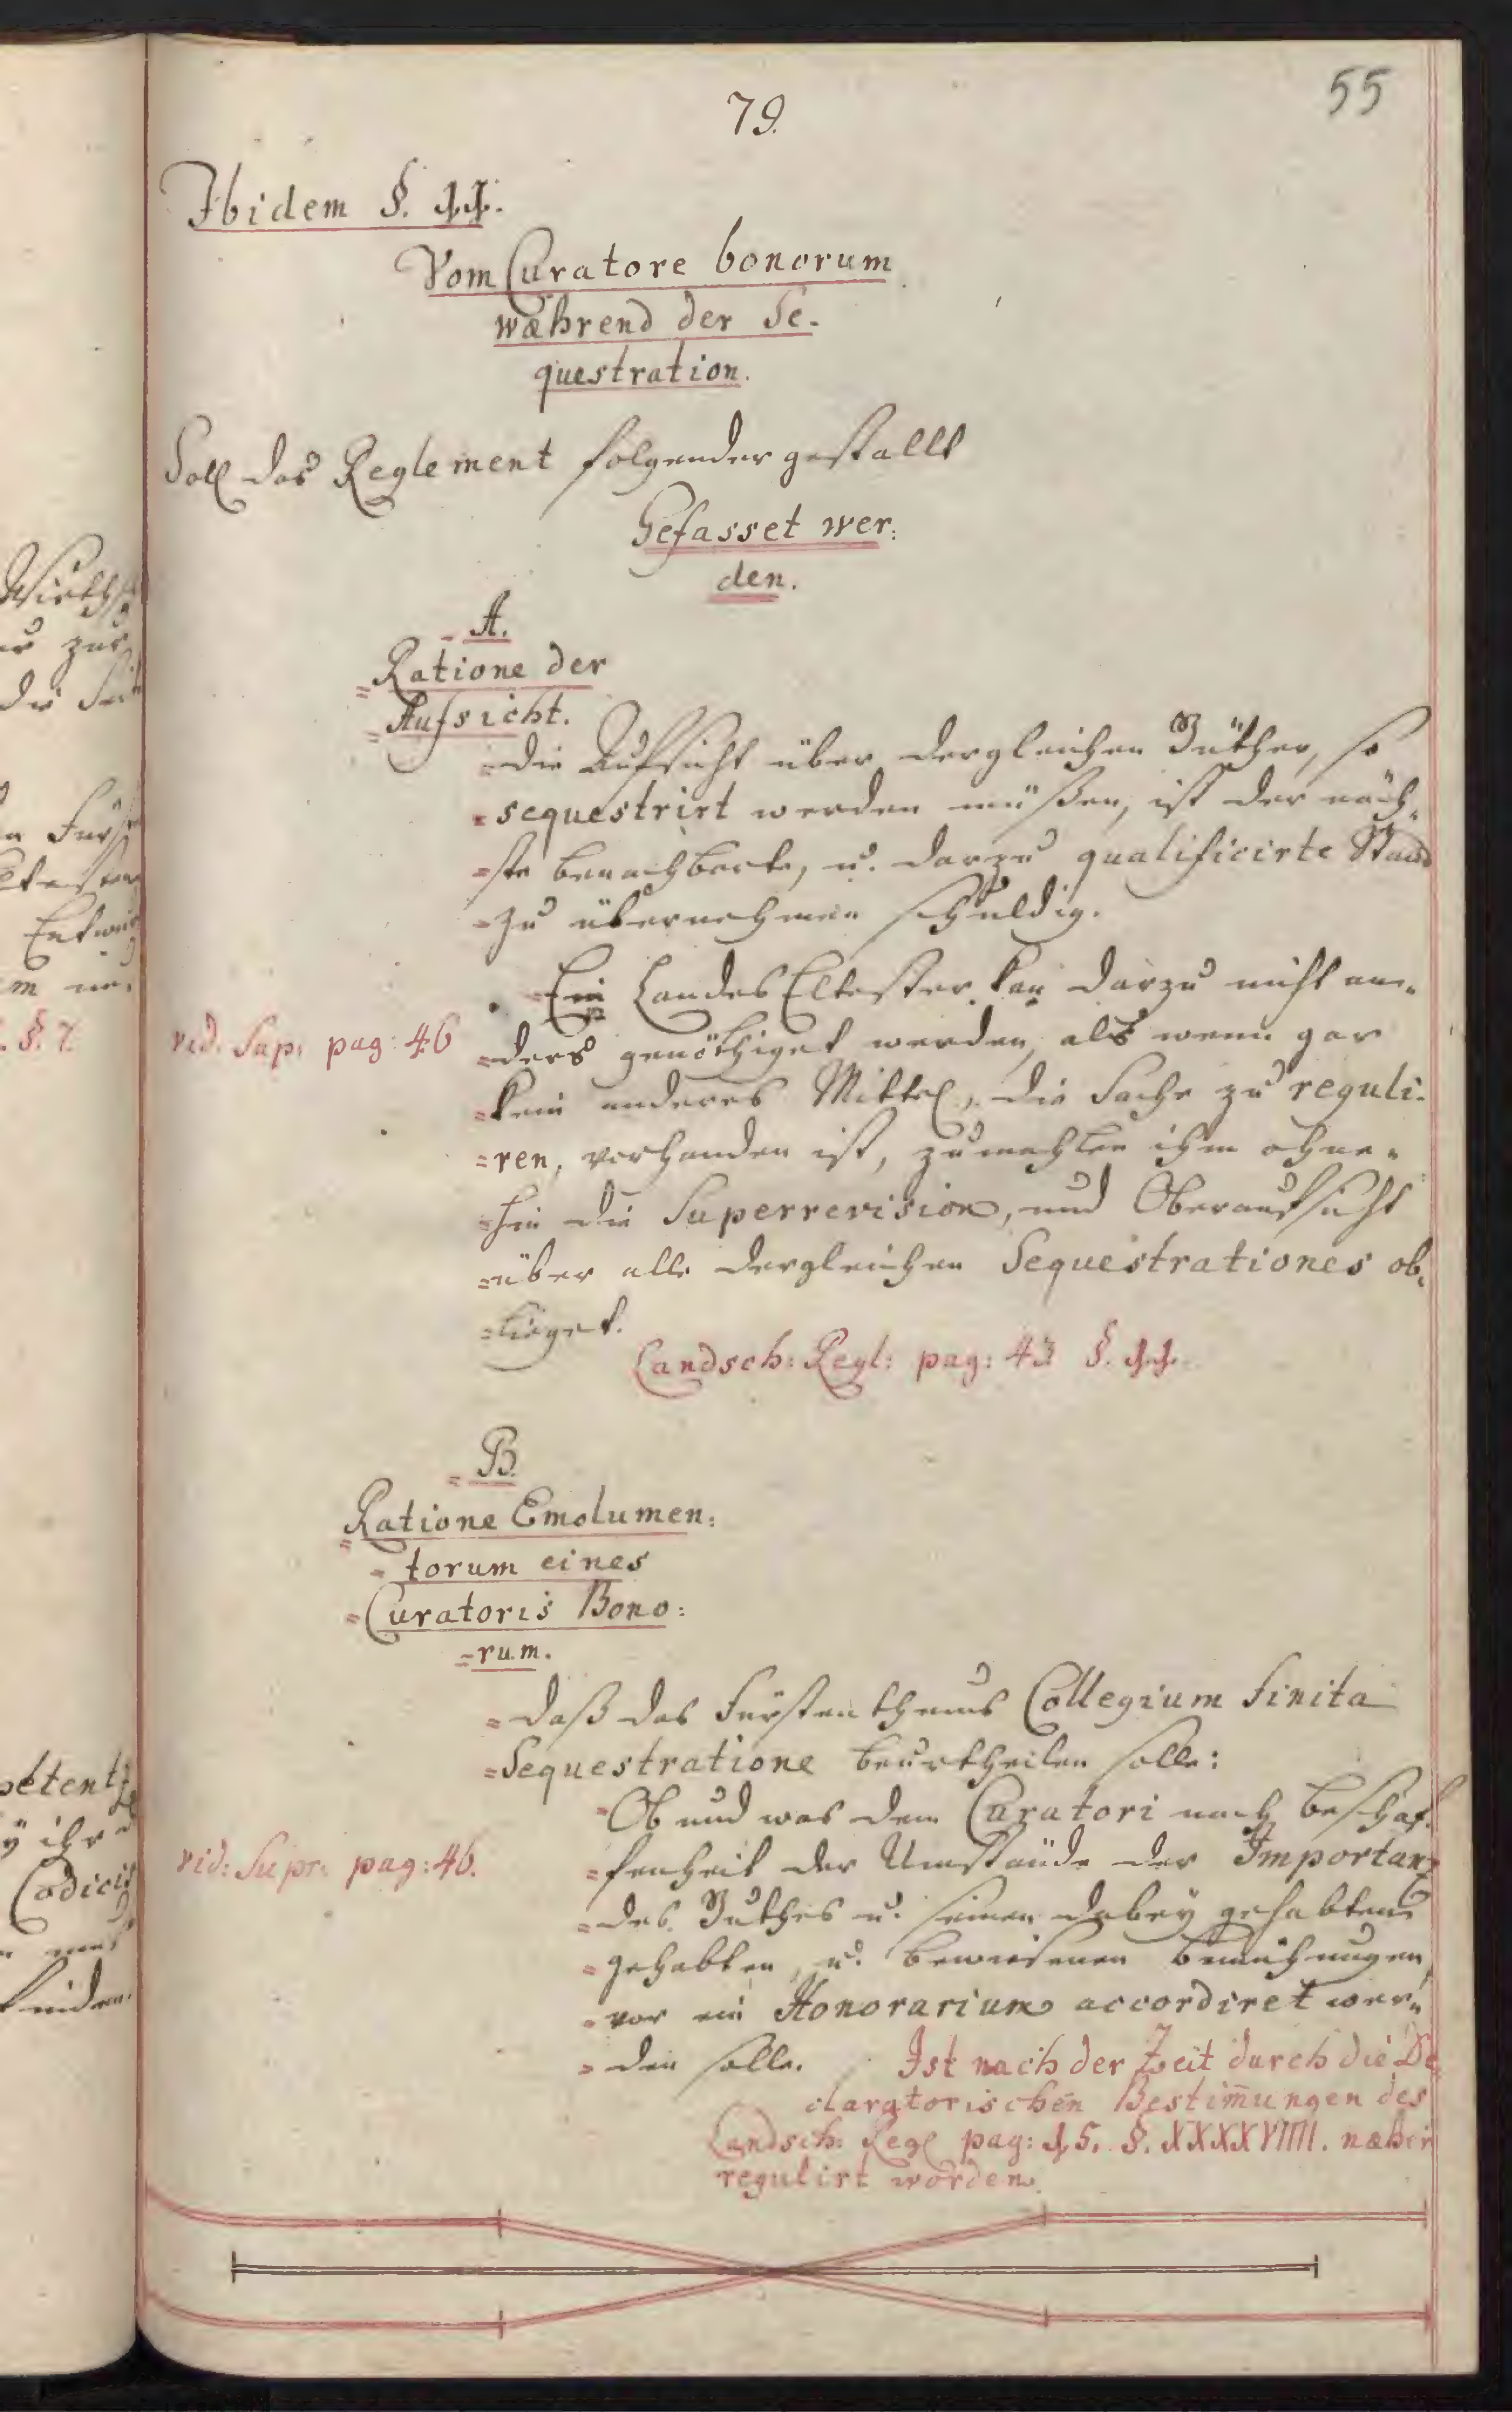 55
79.
Ibidem §. 11.
Vom Curatore bonorum
wæhrend der Se-
questration.
Soll das Reglement folgender gestallt
Gefasset wer:
den.
A.
Ratione der
Aufsicht.
die Aufsicht über dergleichen Güther, so
sequestrirt werden müßen, ist der näch-
ste benachbarte, u. darzu qualificirte Stand
zu übernehmen schuldig.
Ein Landes Eltester kan darzu nicht an-
vid. Sup: pag: 46
ders genöthiget werden, als wenn gar
kein anderes Mittel, die Sache zu reguli-
ren, vorhanden ist, zumahlen ihm ohne-
hin die Superrevision, und Oberaufsicht
über alle dergleichen Sequestrationes ob-
lieget.
Landsch: Regl: pag: 43 §. 11.
B.
Ratione Emolumen:
torum eines
Curatoris Bono:
rum.
daß das Fürstenthums Collegium finita
Sequestratione beurtheilen solle:
Ob und was dem Curatori nach beschaf-
vid: Supr: pag: 46.
fenheit der Umstände der Importanz
des Guthes u. seinen dabey gehabten
gehabten, u. bewiesenen bemühungen,
vor ein Honorarium accordiret wer-
den solle.
Ist nach der Zeit durch die De
claratorischen Bestim̄ungen des
Landsch: Regl pag: 15. §. XXXXVIIII. næher
regulirt worden.